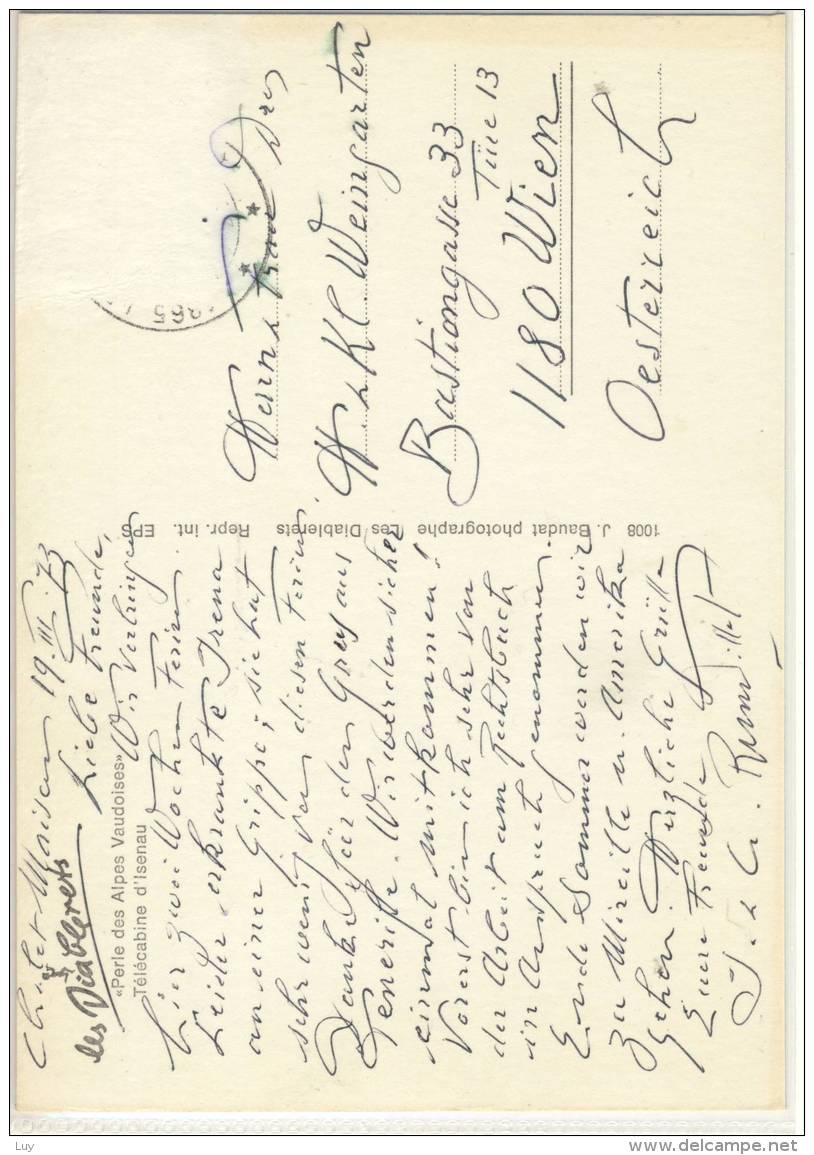 Chalet Moisan 19.III.73
les Diablerets
«Perle des Alpes Vaudoises»
Télécabine d'Isenau
Liebe Freunde,
Wir verbringen
hier zwei Wochen Ferien.
Leider erkrankte Irena
an einer Grippe, sie hat
sehr wenig von diesen Ferien.
Danke für den Gruss aus
Teneriffa. Wir werden sicher
einmal mitkommen!
Vorerst bin ich sehr von
der Arbeit am Rechtsbuch
in Anspruch genommen.
Ende Sommer werden wir
zu Mireille n. Amerika
gehen. Herzliche Grüsse
Eure Freunde
1008 J. Baudat photographe Les Diablerets Repr. int. EPS
1865
Herrn & Frau Drs
H. & Kl. Weingarten
Bastiengasse 33
Türe 13
1180 Wien
Oesterreich
Luy
http://www.delcampe.net